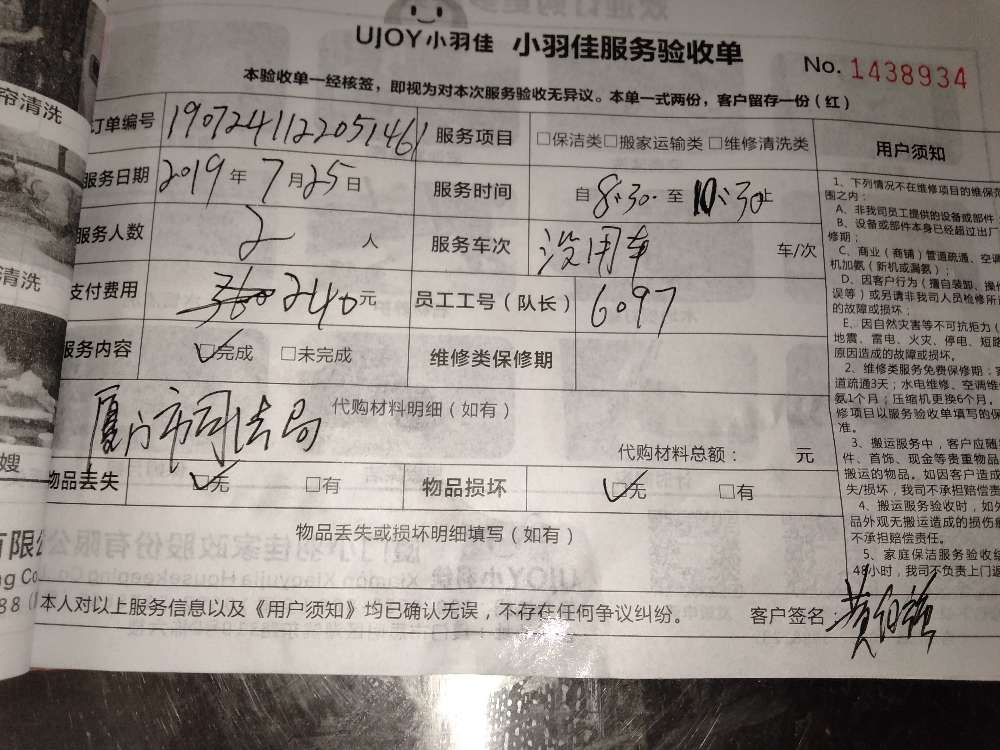 UJOY小羽佳 小羽佳服务验收单
No. 1438934
本验收单一经核签，即视为对本次服务验收无异议。本单一式两份，客户留存一份（红）
订单编号 190724112205146 服务项目 □保洁类□搬家运输类 □维修清洗类
服务日期 2019年7月25日 服务时间 自8:30.至10:30止
服务人数 2人 服务车次 没用车 车/次
支付费用 240元 员工工号（队长） 6097
服务内容 ☑完成 □未完成 维修类保修期
厦门市司法局 代购材料明细（如有）
代购材料总额： 元
物品丢失 ☑无 □有 物品损坏 ☑无 □有
物品丢失或损坏明细填写（如有）
本人对以上服务信息以及《用户须知》均已确认无误，不存在任何争议纠纷。 客户签名：
用户须知
1、下列情况不在维修项目的维保范
围之内：
A、非我司员工提供的设备或部件
B、设备或部件本身已经超过出厂
修期；
C、商业（商铺）管道疏通、空调
机加氨（新机或漏氨）；
D、因客户行为（擅自装卸、操作
误等）或另请非我司人员检修所
的故障或损坏；
E、因自然灾害等不可抗拒力（
地震、雷电、火灾、停电、短路
原因造成的故障或损坏。
2、维修类服务免费保修期：
道疏通3天；水电维修、空调维
氨1个月；压缩机更换6个月。
修项目以服务验收单填写的保
准。
3、搬运服务中，客户应随
件、首饰、现金等贵重物品
搬运的物品。如因客户造成
失/损坏，我司不承担赔偿责
4、搬运服务验收时，如外
品外观无搬运造成的损伤
不承担赔偿责任。
5、家庭保洁服务验收结
48小时，我司不负责上门返
帘清洗
清洗
嫂
有限公
ng Co
88